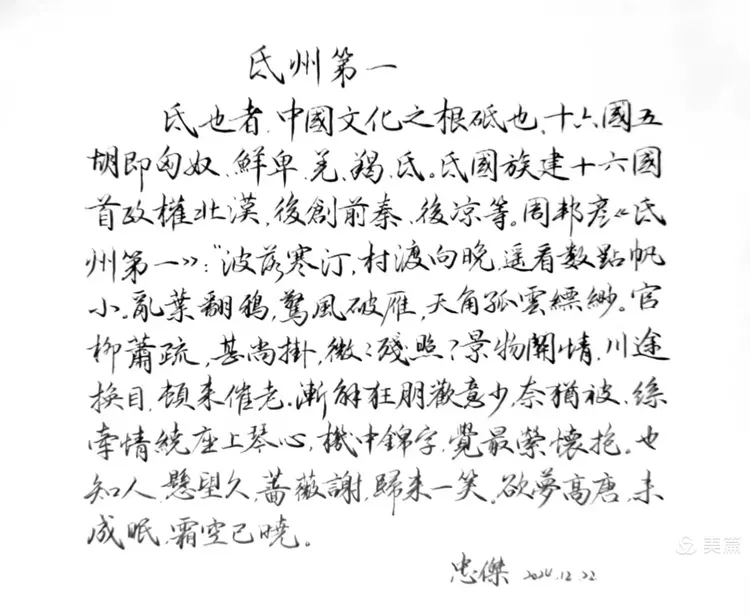 氐州第一
氐也者,中國文化之根砥也、十六國五
胡即匈奴、鮮卑、羌、羯、氐。氐國族建十六國
首政權北漢,後創前秦、後凉等。周邦彦《氐
州第一》:"波落寒汀,村渡向晚,遥看数點帆
小。亂葉翻鴉,驚風破雁,天角孤雲縹緲。官
柳蕭疏,甚尚掛,微:殘照?景物關情,川途
换目,頓来催老。漸解狂朋歡意少,奈猶被、絲
牽情繞座上琴心,機中錦字,覺最縈懷抱。也
知人、懸望久,薔薇謝,歸来一笑。欲夢高唐,未
成眠,霜空已曉。
忠傑 2024.12.22
美篇